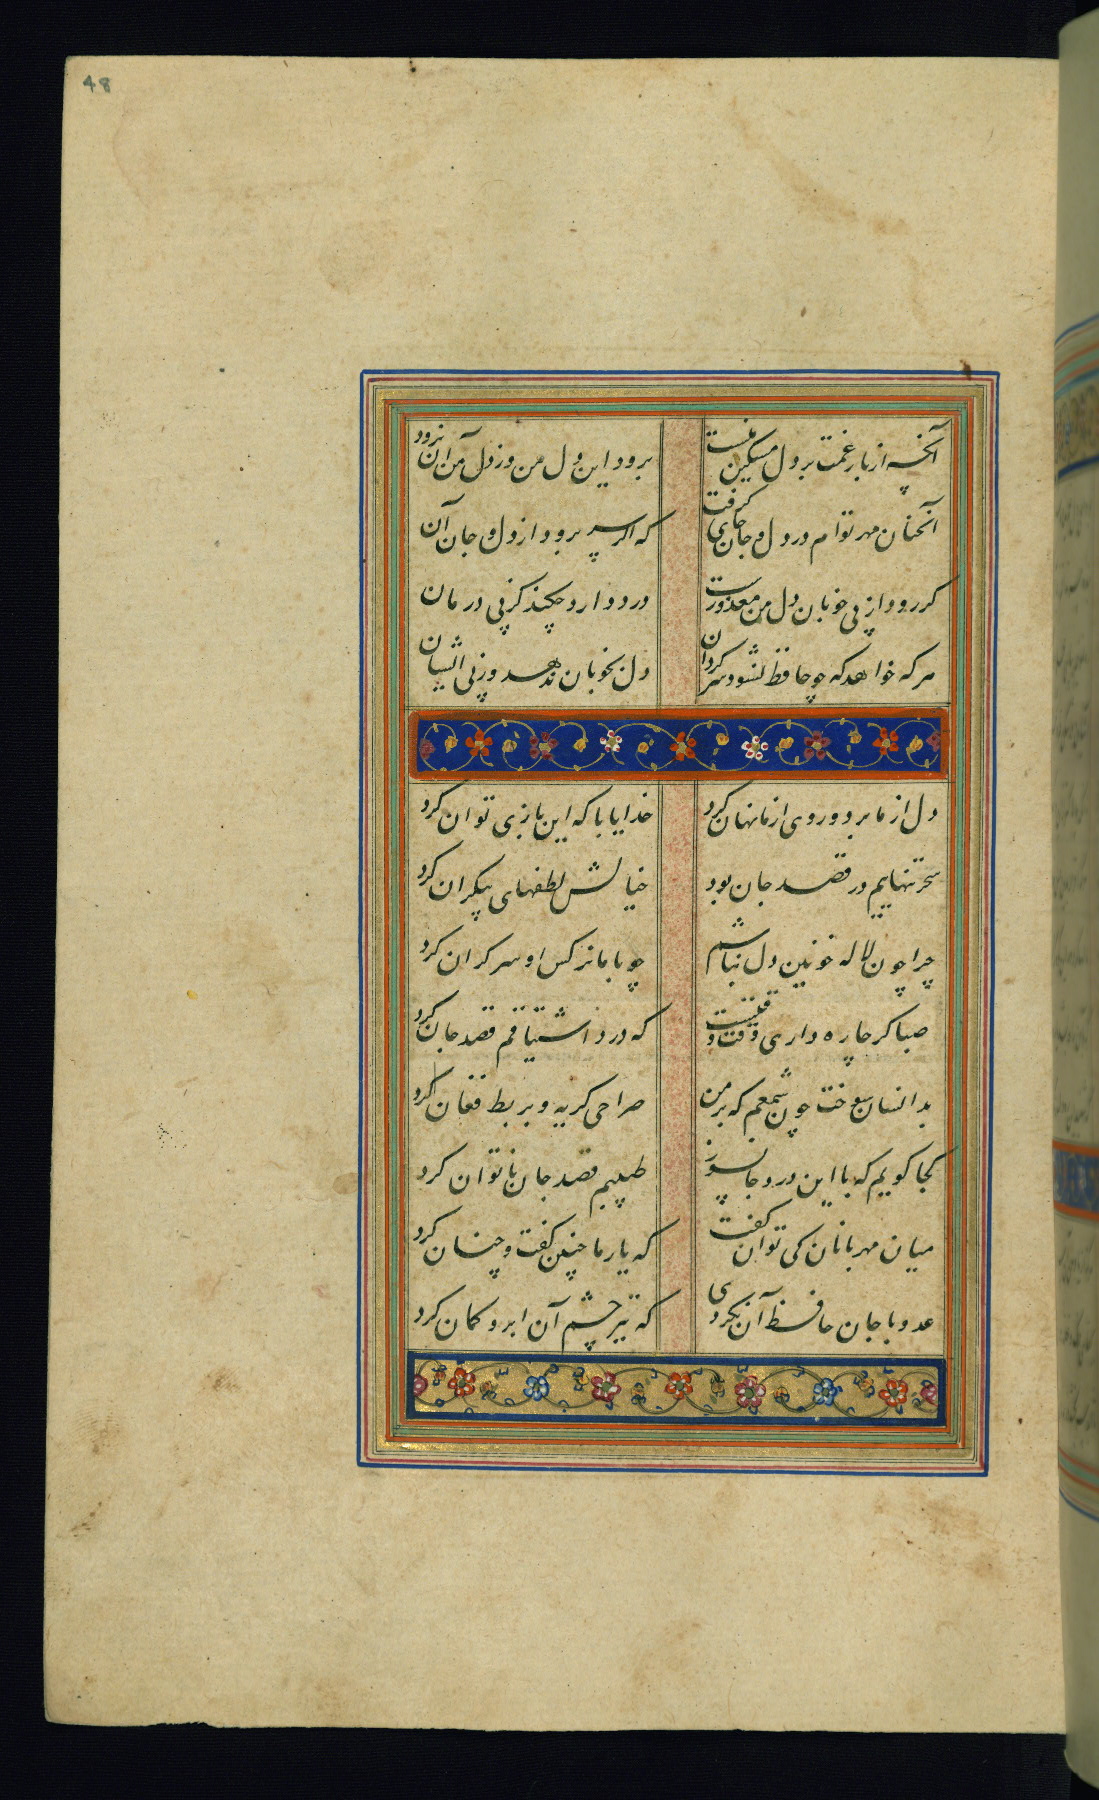 48
آنچه از بار غمت بر دل مسکین منست برود این دل من وز دل من آن نرود
آنچنان مهر توام در دل و جان جای گرفت که اگر سر برود از دل و جان آن
گر رود از پی خوبان دل من معذورست درد دارد چکند کز پی درمان
هر که خواهد که چو حافظ نشود سرگردان دل بخوبان ندهد وز پی ایشان
دل از ما برد و روی از ما نهان کرد خدایا با که این بازی توان کرد
سحر تنهاییم در قصد جان بود خیالش لطفهای بیکران کرد
چرا چون لاله خونین دل نباشم چو با ما نرکس او سر کران کرد
صبا کر چاره داری وقت وقتست که درد اشتیاقم قصد جان کرد
بدانسان سوخت چون شمعم که بر من صراحی کریه و بربط فغان کرد
کجا کویم که با این درد جانسوز طبیبم قصد جان ناتوان کرد
میان مهربانان کی توان کفت که یار ما چنین کفت و چنان کرد
عدو با جان حافظ آن نکردی که تیر چشم آن ابرو کمان کرد